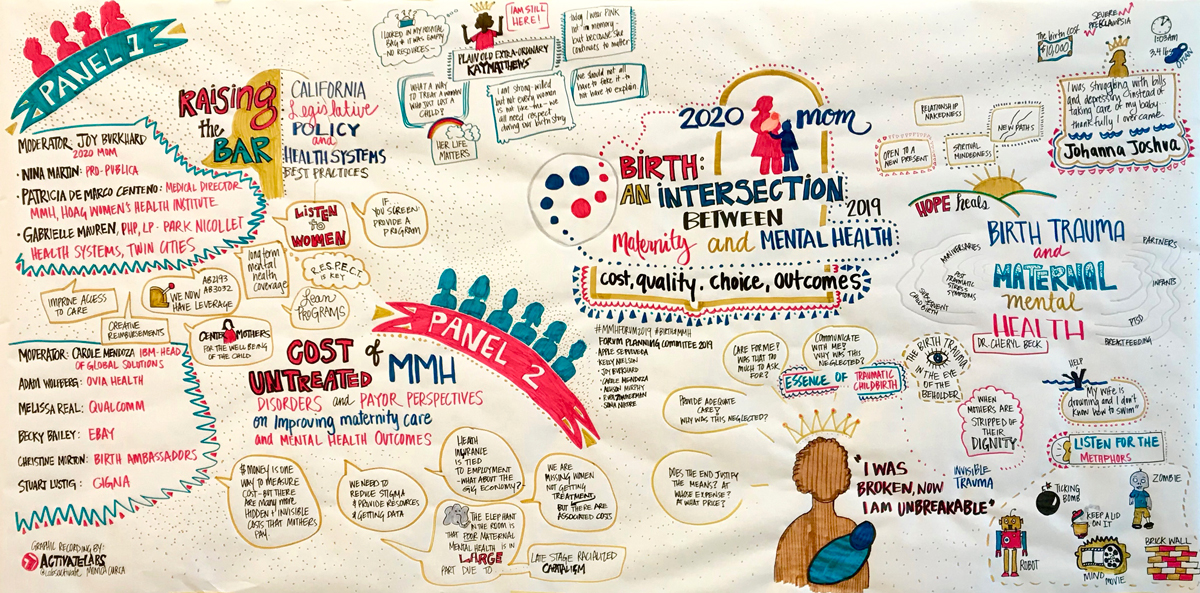 PANEL 1
RAISING
the
BAR
CALIFORNIA
Legislative
POLICY
and
HEALTH SYSTEMS
BEST PRACTICES
MODERATOR: JOY BURKHARD
2020 MOM
• NINA MARTIN: PRO-PUBLICA
• PATRICIA DE MARCO CENTENO: MEDICAL DIRECTOR
MMH, HOAG WOMEN'S HEALTH INSTITUTE
• GABRIELLE MAUREN, PHP, LP - PARK NICOLLET
HEALTH SYSTEMS, TWIN CITIES
LISTEN
TO
WOMEN
IF...
YOU SCREEN-
PROVIDE A
PROGRAM
long term
mental
health
coverage
R.E.S.P.E.C.T.
IS KEY
Lean
PROGRAMS
IMPROVE ACCESS
TO CARE
WE NOW
HAVE LEVERAGE
AB2193
AB3032
CREATIVE
REIMBURSEMENTS
CENTER MOTHERS
FOR THE WELL BEING
OF THE CHILD
I LOOKED IN MY HOSPITAL
BAG & IT WAS EMPTY
-NO RESOURCES-
I AM STILL
HERE!
PLAIN OLD EXTRA-ORDINARY
KAY MATTHEWS
today I wear PINK
not in memory-
but because she
continues to matter
WHAT A WAY
TO TREAT A WOMAN
WHO JUST LOST A
CHILD?
I am strong-willed
but not every women
is not like that- we
all need respect
during our birth story
we should not all
have to fake it- to
not have to explain
HER LIFE
MATTERS
2020 mom
BIRTH:
AN INTERSECTION
BETWEEN
2019
Maternity and MENTAL HEALTH
cost, quality, choice, outcomes
#MMHFORUM2019 #BIRTHMMH
FORUM PLANNING COMMITTEE 2019
APPLE SEPULVEDA
KELLY NIELSON
JOY BURKHARD
CAROLE MENDOZA
ALISON MURPHY
The birth cost
$10,000
SEVERE
PREECLAMPSIA
1:03AM
3.4 lbs
I was struggling with bills
and depression, instead of
taking care of my baby
thankfully I overcame.
Johanna Joshua
RELATIONSHIP
NAKEDNESS
NEW PATHS
OPEN TO A
NEW PRESENT
SPIRITUAL
MINDEDNESS
HOPE heals
BIRTH TRAUMA
and
MATERNAL
mental
HEALTH
DR. CHERYL BECK
ANNIVERSARIES
PARTNERS
POST
TRAUMATIC
STRESS
SYMPTOMS
SUBSEQUENT
CHILD BIRTH
INFANTS
PTSD
BREASTFEEDING
PANEL 2
COST of
UNTREATED MMH
DISORDERS and PAYOR PERSPECTIVES
on Improving maternity care
and MENTAL HEALTH OUTCOMES
MODERATOR: CAROLE MENDOZA IBM-HEAD
OF GLOBAL SOLUTIONS
ADAM WOLFBERG: OVIA HEALTH
MELISSA REAL: QUALCOMM
BECKY BAILEY: EBAY
CHRISTINE MORTON: BIRTH AMBASSADORS
STUART LUSTIG: CIGNA
$ MONEY IS ONE
WAY TO MEASURE
COST- BUT THERE
ARE MANY MORE
HIDDEN & INVISIBLE
COSTS THAT MOTHERS
PAY.
WE NEED TO
REDUCE STIGMA
& PROVIDE RESOURCES
& GETTING DATA
HEATH
INSURANCE
IS TIED
TO EMPLOYMENT
-WHAT ABOUT THE
GIG ECONOMY?
WE ARE
MISSING WOMEN
NOT GETTING
TREATMENT,
BUT THERE ARE
ASSOCIATED COSTS
THE ELEPHANT
IN THE ROOM IS
THAT POOR MATERNAL
MENTAL HEALTH IS IN
LARGE
PART DUE TO
LATE STAGE RACIALIZED
CAPITALISM
CARE FOR ME?
WAS THAT TOO
MUCH TO ASK
FOR?
COMMUNICATE
WITH ME?
WHY WAS THIS
NEGLECTED?
ESSENCE OF TRAUMATIC
CHILDBIRTH
THE BIRTH TRAUMA
IN THE EYE
OF THE
BEHOLDER
PROVIDE ADEQUATE
CARE?
WHY WAS THIS NEGLECTED?
DOES THE END JUSTIFY
THE MEANS? AT
WHOSE EXPENSE?
AT WHAT PRICE?
"I WAS
BROKEN, NOW
I AM UNBREAKABLE"
WHEN
MOTHERS ARE
STRIPPED OF
THEIR
DIGNITY
INVISIBLE
TRAUMA
HELP
"My wife is
drowning and I don't
know how to swim"
LISTEN FOR THE
METAPHORS
TICKING
BOMB
ZOMBIE
KEEP A LID
ON IT
ROBOT
MIND MOVIE
BRICK WALL
GRAPHIC RECORDING BY:
ACTIVATE LABS